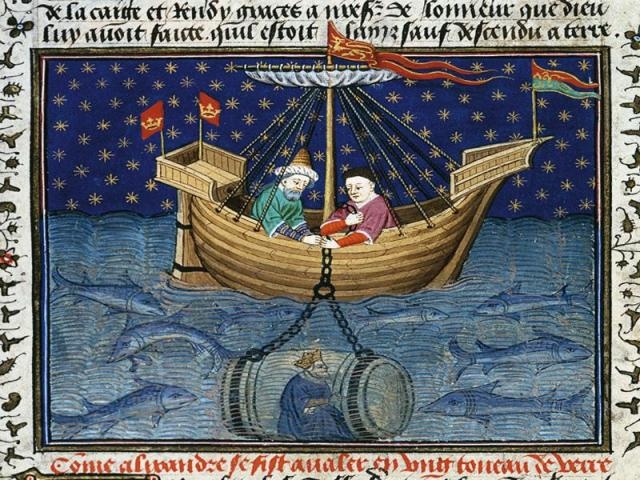 de la caige et Rendy graces a n̄res̄. de lonneur que dieu
luy auoit faicte quil estoit sainz sauf descendu a terre
Com̄e alixandre se fist aualer en vng tonneau de verre